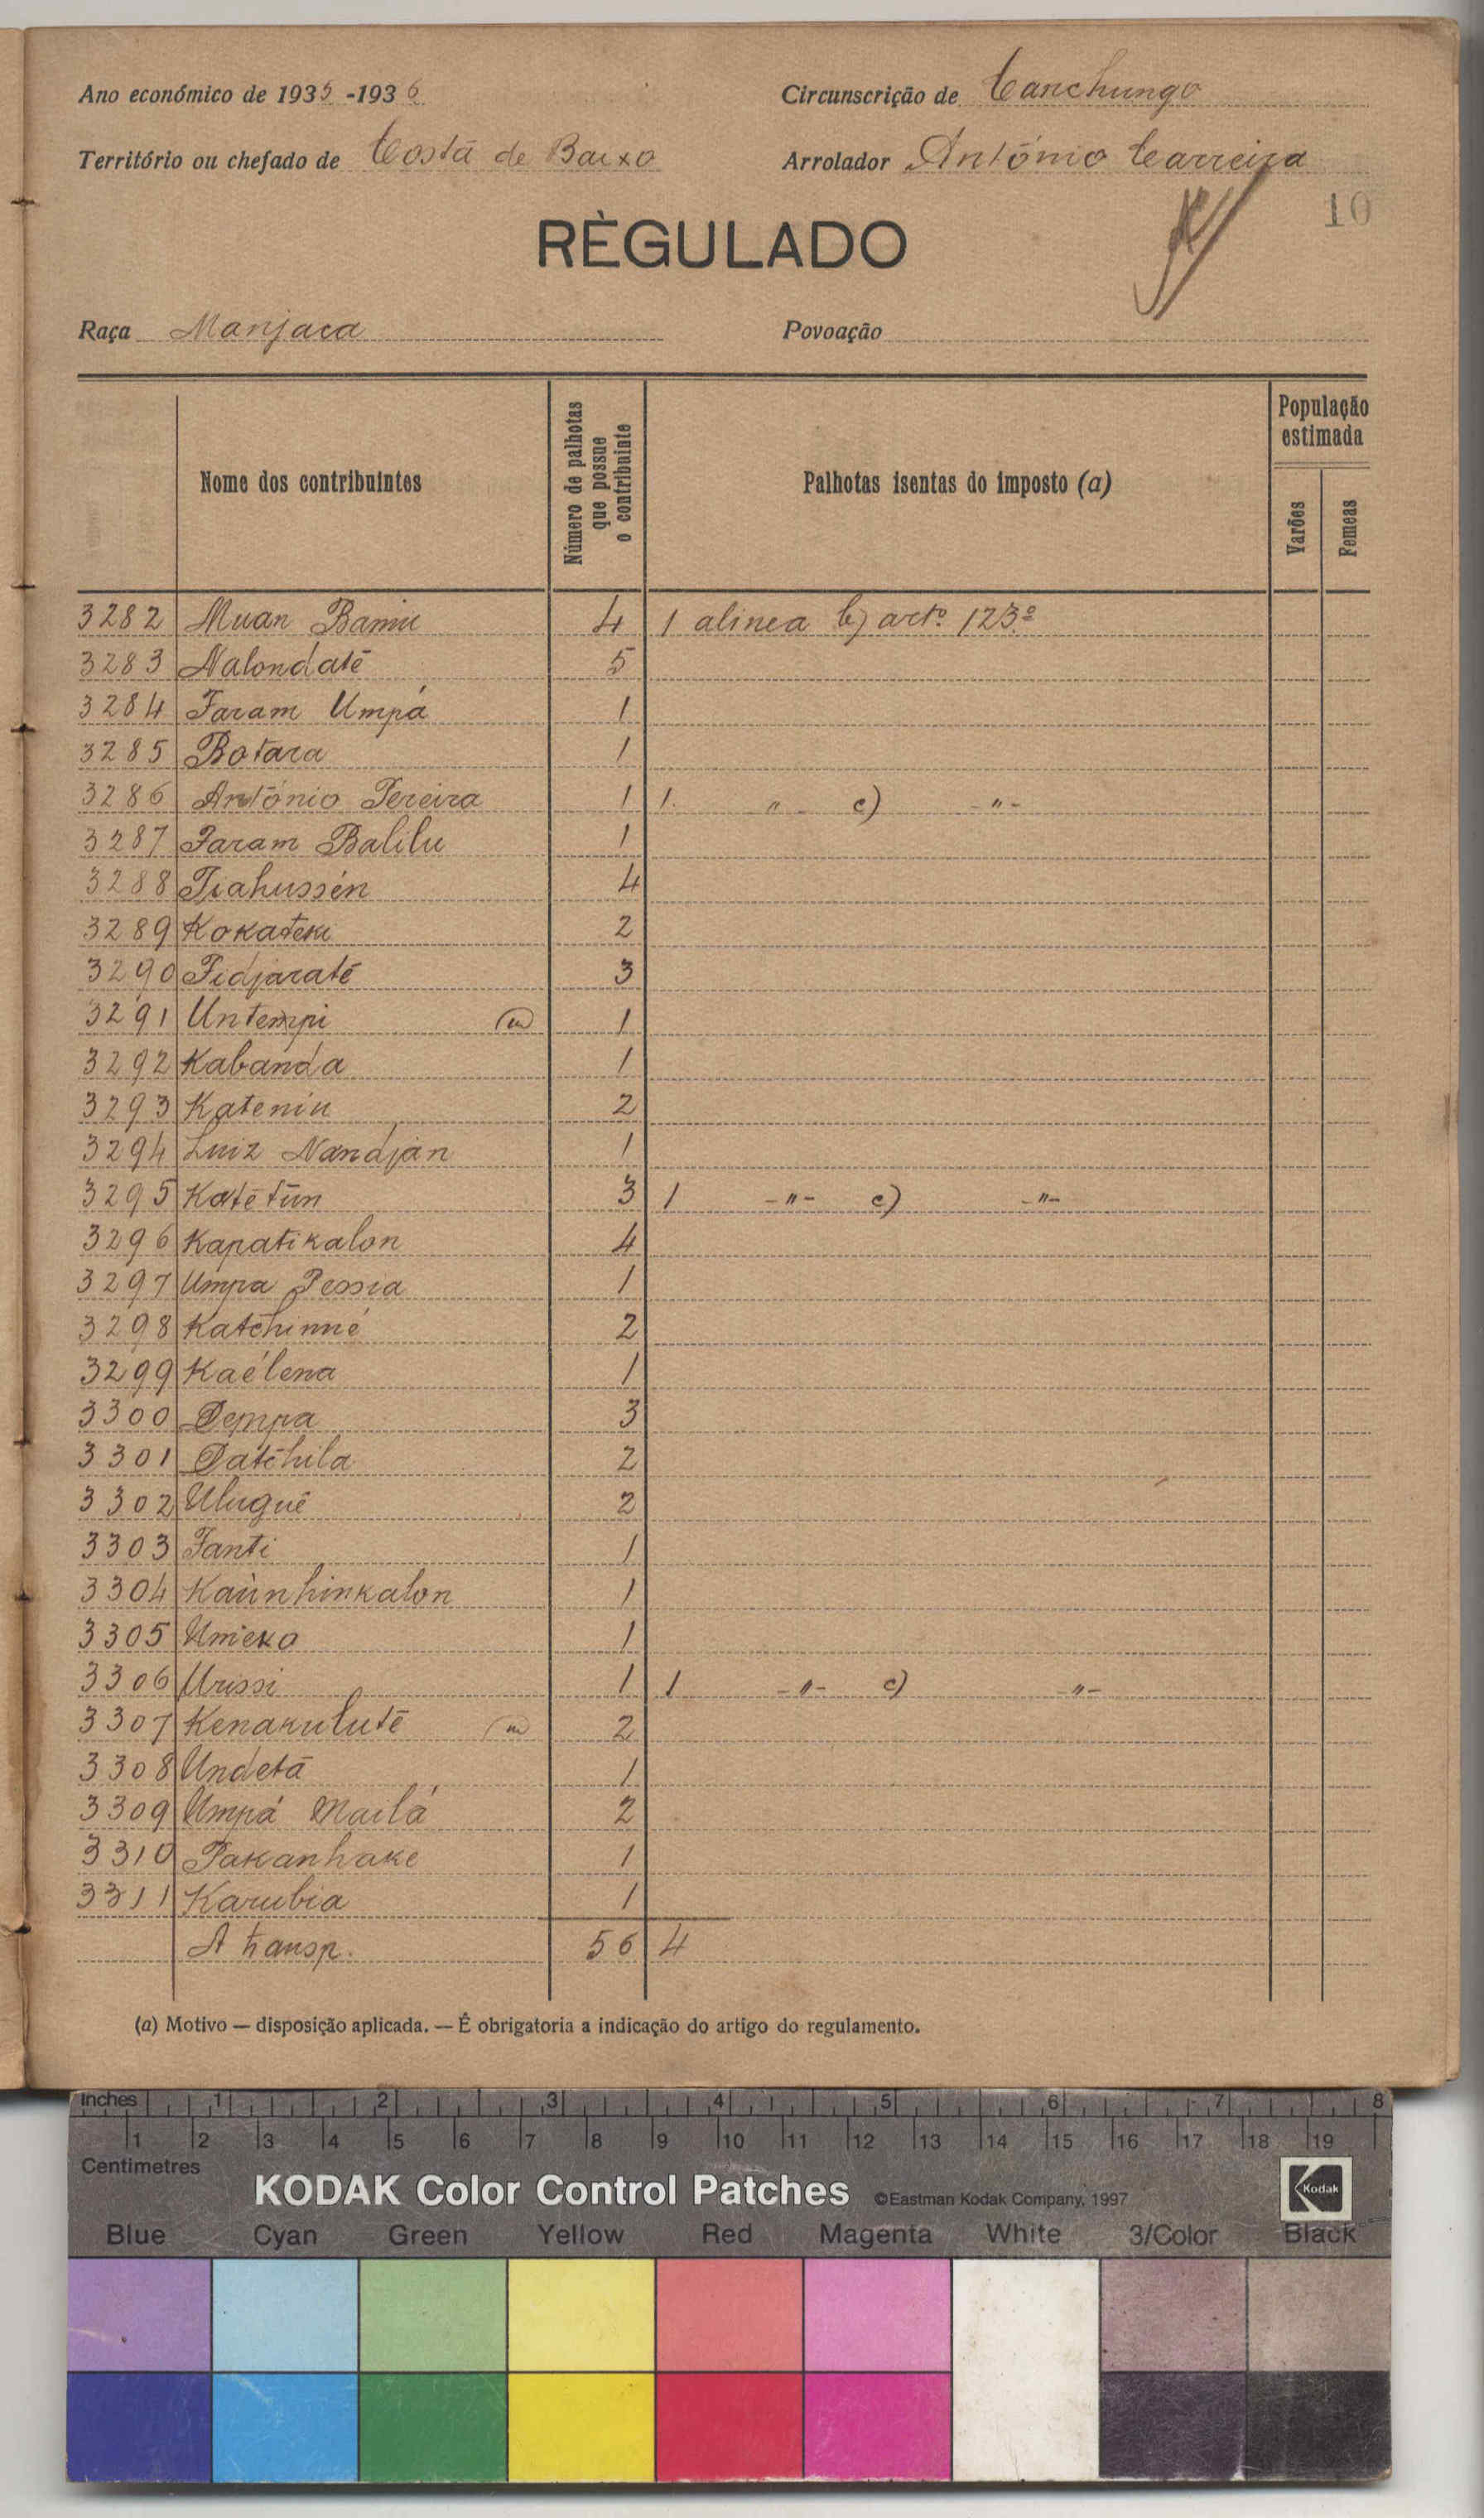 Ano económico de 1935-1936 Circunscrição de Canchungo
Território ou chefado de Costa de Baixo Arrolador António Carreira
10
RÈGULADO
Raça Manjaca Povoação
Nome dos contribuintes Número de palhotas que possue o contribuinte Palhotas isentas do imposto (a) População estimada Varões Femeas
3282 Muan Bamu 4 1 alinea b) artº 123º
3283 Nalondatê 5
3284 Faram Umpá 1
3285 Botara 1
3286 António Pereira 1 1 " c) -"-
3287 Param Balilu 1
3288 Tiahussén 4
3289 Kokateki 2
3290 Pidjaratê 3
3291 Untempi (m) 1
3292 Kabanda 1
3293 Kateniu 2
3294 Luiz Nandján 1
3295 Katêtun 3 1 -"- c) -"-
3296 Kapatikalon 4
3297 Umpa Pessia 1
3298 Katchimné 2
3299 Kaélena 1
3300 Dempa 3
3301 Datchila 2
3302 Ulugué 2
3303 Fanti 1
3304 Kaùnhinkalon 1
3305 Umieko 1
3306 Urissi 1 1 -"- c) -"-
3307 Kenakulutê (m) 2
3308 Undetá 1
3309 Umpá Mailá 2
3310 Pakanhake 1
3311 Karubia 1
A transp. 56 4
(a) Motivo — disposição aplicada. — É obrigatoria a indicação do artigo do regulamento.
Inches 1 2 3 4 5 6 7 8
1 2 3 4 5 6 7 8 9 10 11 12 13 14 15 16 17 18 19
Centimetres
KODAK Color Control Patches ©Eastman Kodak Company, 1997 Kodak
Blue Cyan Green Yellow Red Magenta White 3/Color Black